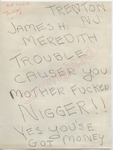 TRENTON
NJ
JAMES H.
MEREDITH
TROUBLE
CAUSER YOU
MOTHER FUCKER
NIGGER!!
YES YOUS'E
GOT MONEY